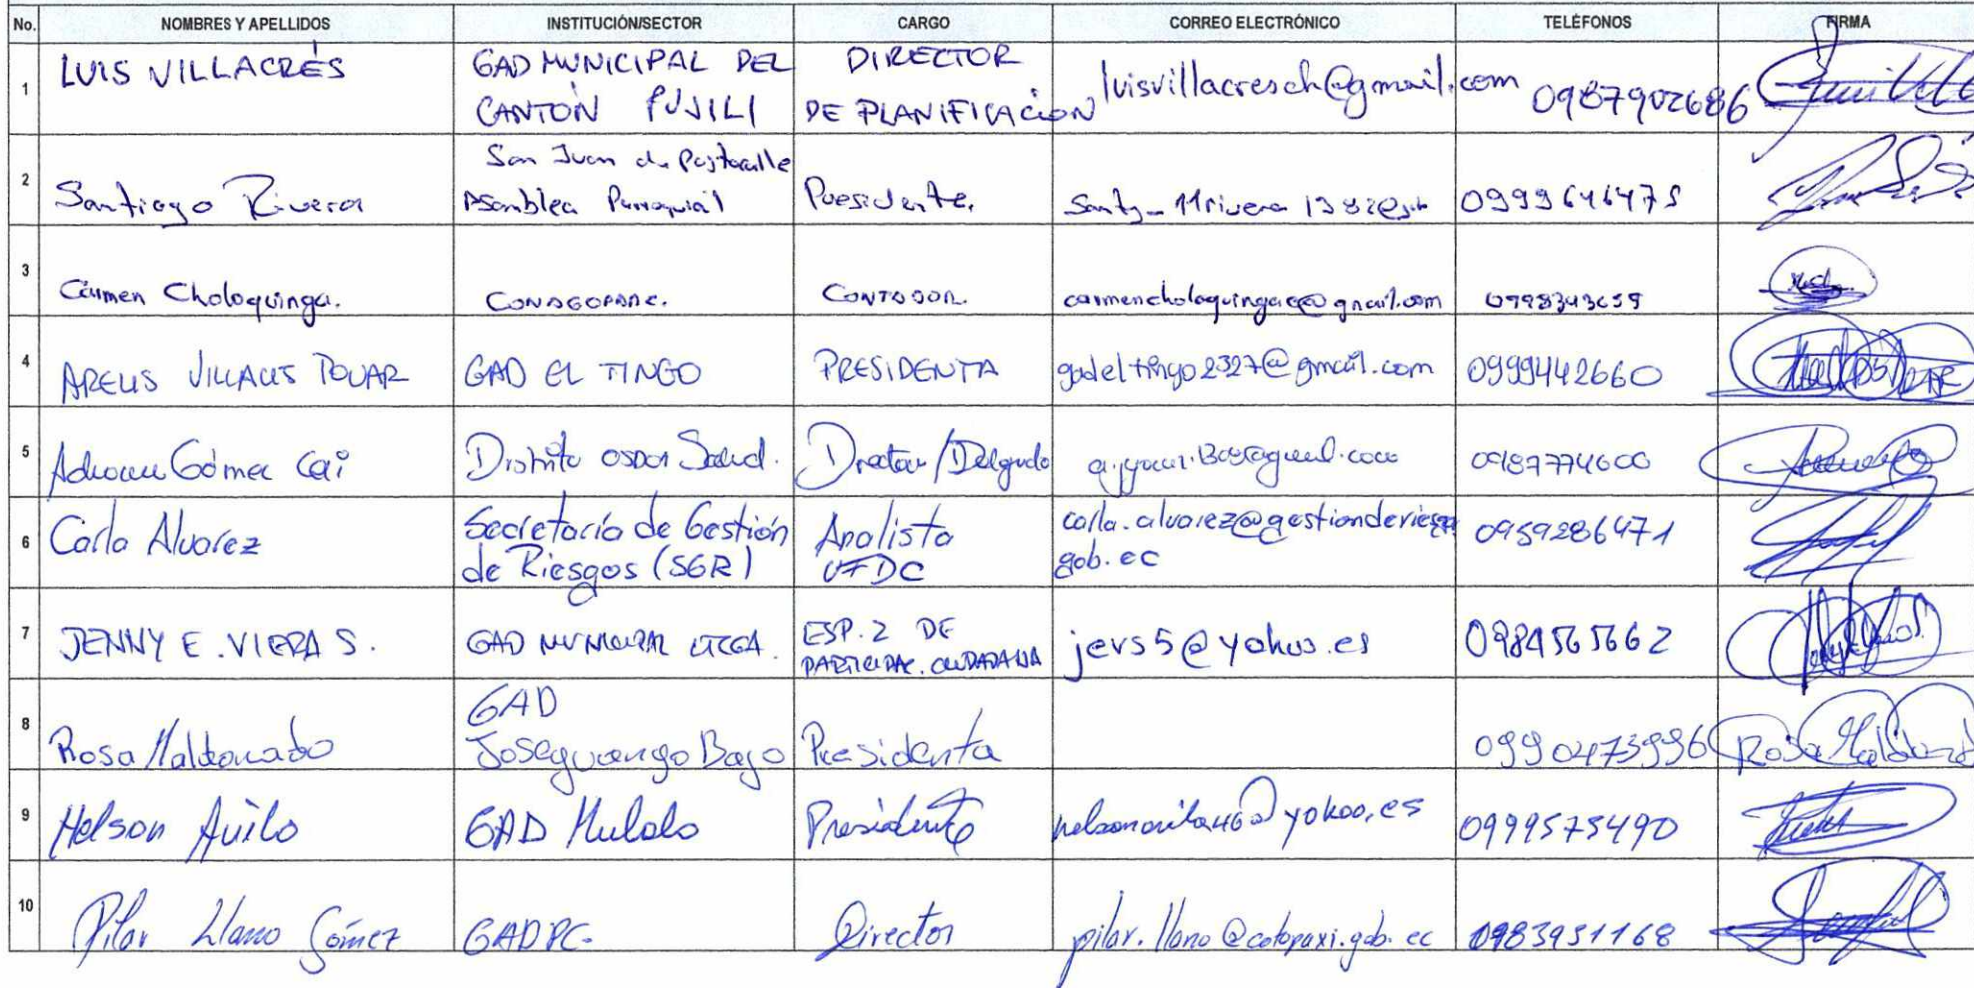 No. NOMBRES Y APELLIDOS INSTITUCIÓN/SECTOR CARGO CORREO ELECTRÓNICO TELÉFONOS FIRMA
1 LUIS VILLACRÉS GAD MUNICIPAL DEL CANTÓN PUJILI DIRECTOR DE PLANIFICACION luisvillacresch@gmail.com 0987902686
2 Santiago Rivera San Juan de Pastocalle Asamblea Parroquial Presidente. 0999646475
3 Carmen Choloquinga. CONAGOPARE. CONTADOR. carmencholoquingac@gmail.com
4 ARELIS VILLALIS TOVAR GAD EL TINGO PRESIDENTA gadeltingo2327@gmail.com 0999442660
5 Gómez Distrito Salud. Director/Delegado
6 Carla Alvarez Secretaría de Gestión de Riesgos (SGR) Analista UFDC carla.alvarez@gestionderiesgos gob.ec 0959286471
7 JENNY E. VIERA S. GAD MUNICIPAL LTCGA. ESP. 2 DE PARTICIPAC. CIUDADANA jevs5@yahoo.es 0984565662
8 Rosa Maldonado GAD Joseguango Bajo Presidenta 0990473996 Rosa Maldonado
9 Nelson Avila GAD Mulalo Presidente 0999575490
10 Pilar Llano Gómez GADPC. Director pilar.llano@cotopaxi.gob.ec 0983951168